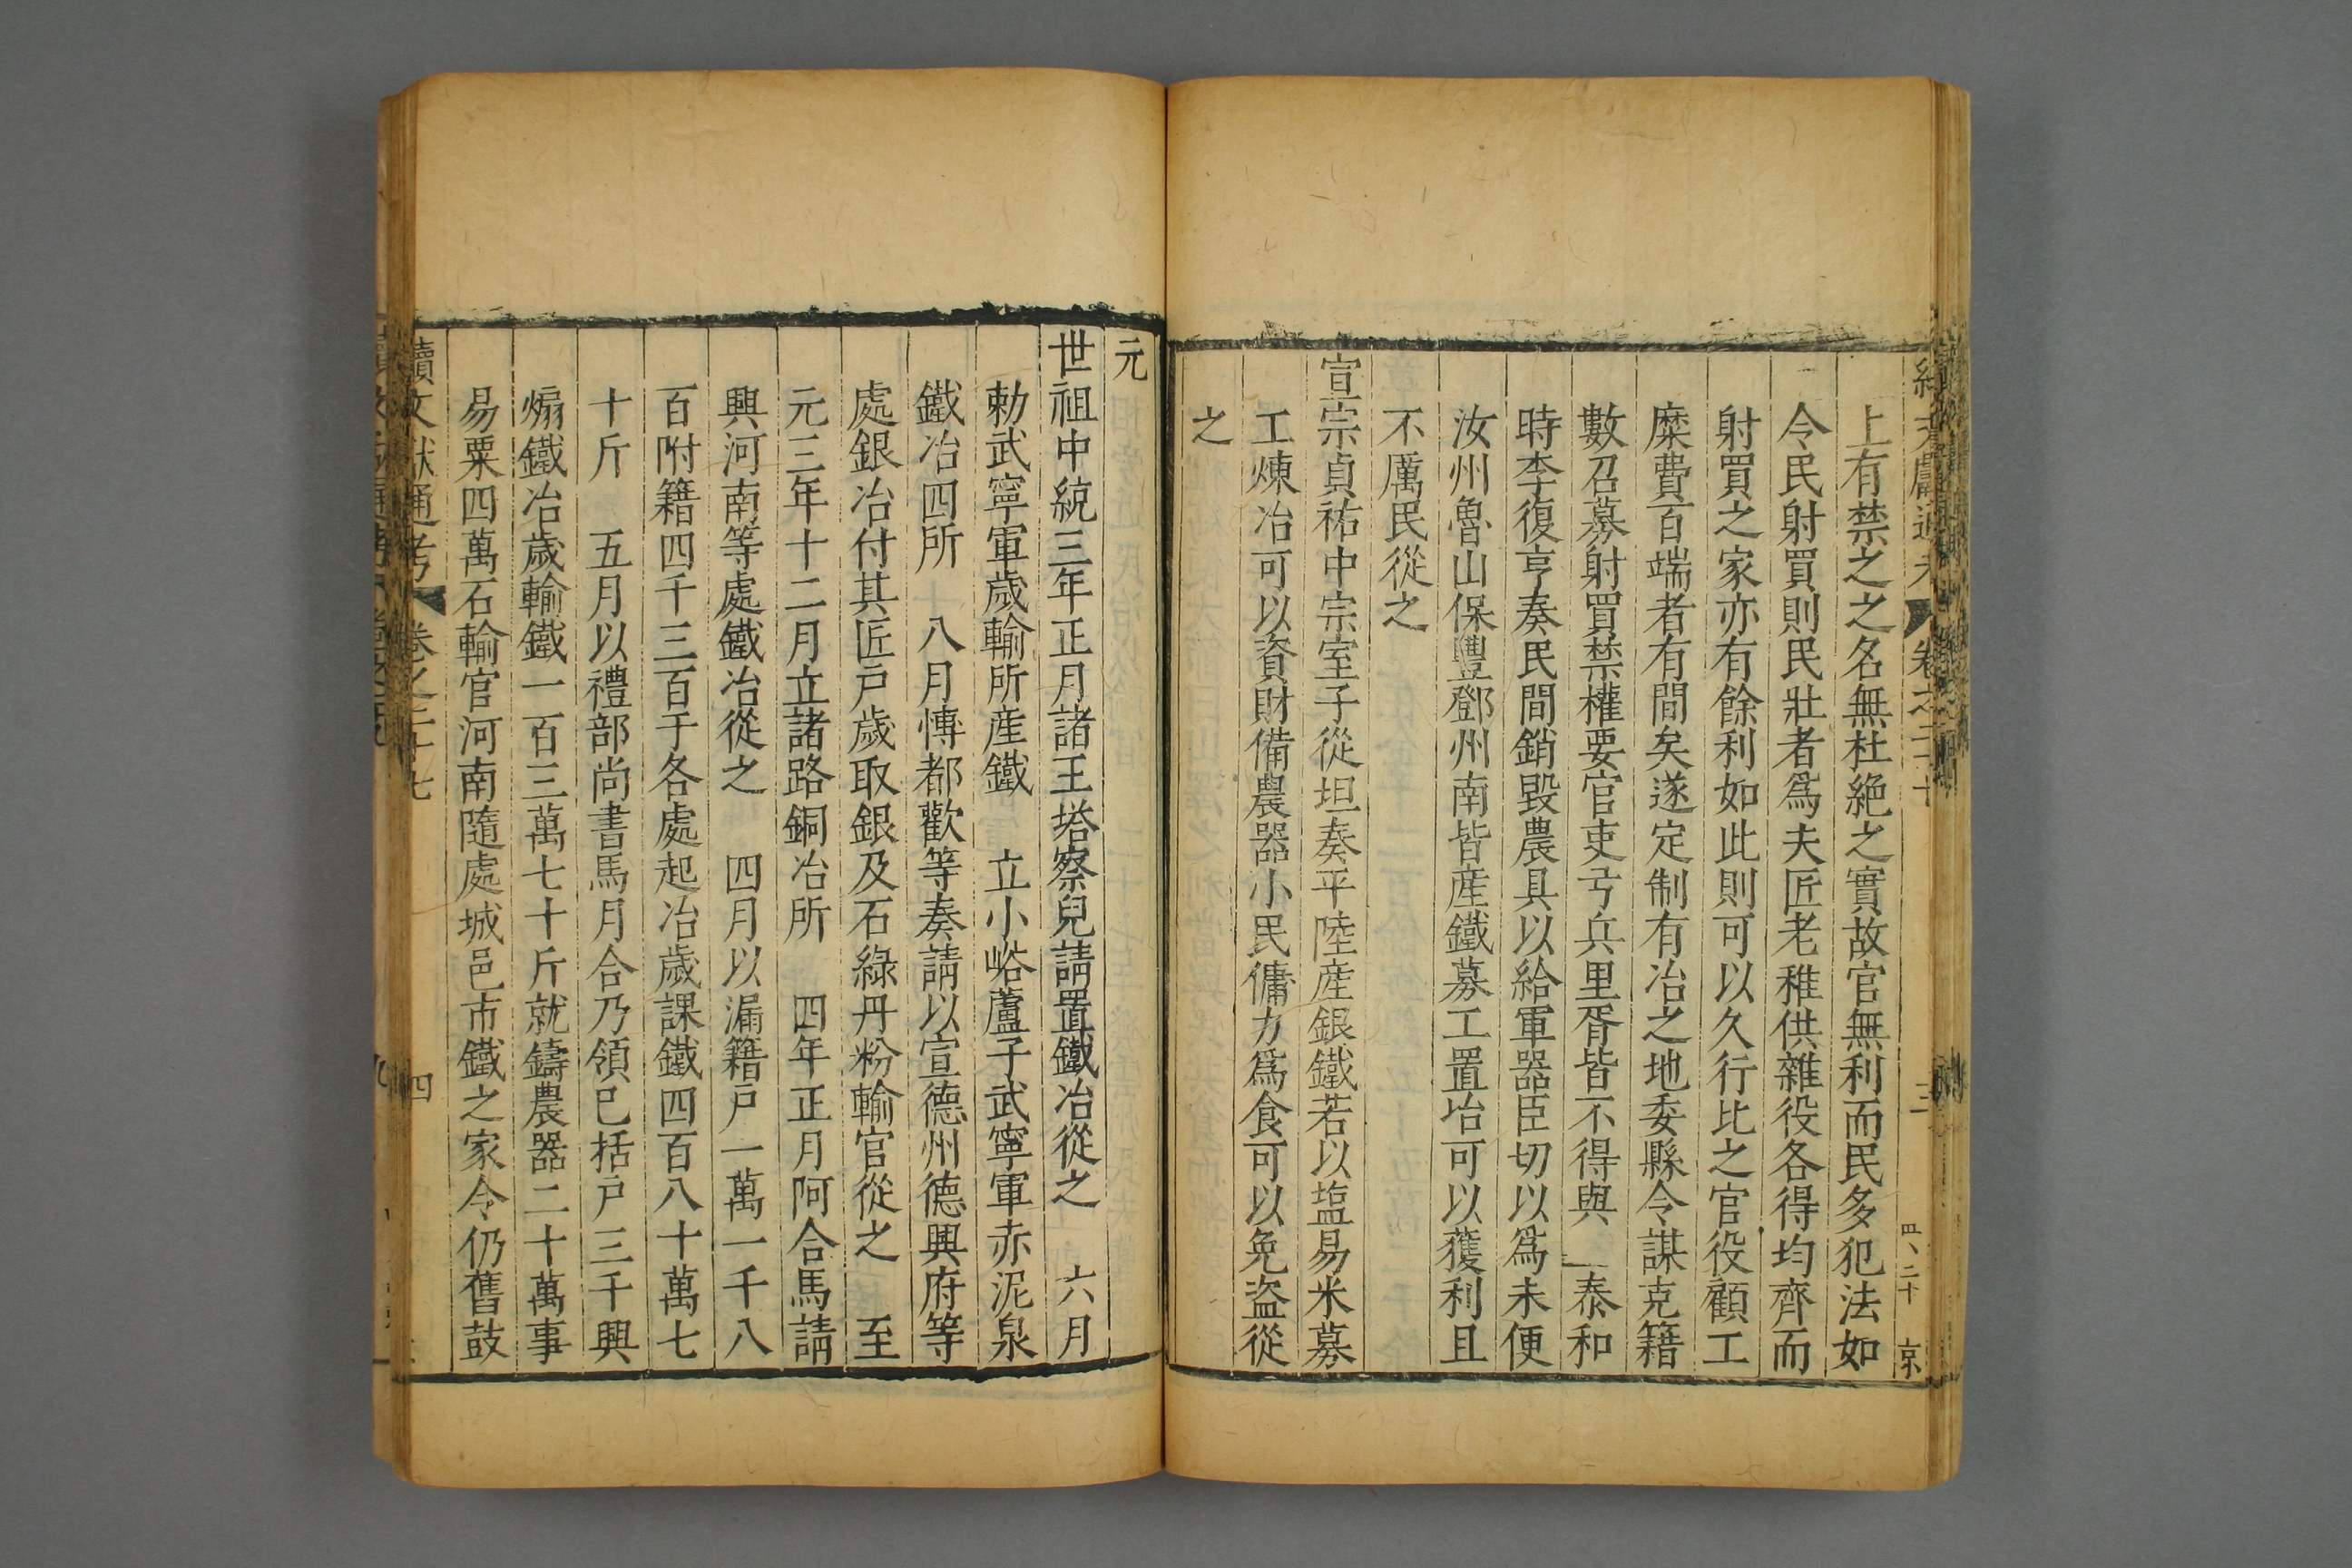 上有禁之之名無杜絶之實故官無利而民多犯法如
令民射買則民壯者爲夫匠老稚供雜役各得均齊而
射買之家亦有餘利如此則可以久行比之官役顧工
糜費百端者有間矣遂定制有冶之地委縣令謀克籍
數召募射買禁權要官吏弓兵里胥皆不得與　泰和
時李復亨奏民間銷毀農具以給軍器臣切以爲未便
汝州魯山保豐鄧州南皆産鐵募工置冶可以獲利且
不厲民從之
宣宗貞祐中宗室子從坦奏平陸産銀鐵若以塩易米募
工煉冶可以資財備農器小民傭力爲食可以免盗從
之
元
世祖中統三年正月諸王塔察兒請置鐵冶從之　六月
勅武寧軍歲輸所産鐵　立小峪蘆子武寧軍赤泥泉
鐵冶四所　八月慱都歡等奏請以宣德州德興府等
處銀冶付其匠戸歲取銀及石綠丹粉輸官從之　至
元三年十二月立諸路銅冶所　四年正月阿合馬請
興河南等處鐵冶從之　四月以漏籍戸一萬一千八
百附籍四千三百于各處起冶歲課鐵四百八十萬七
十斤　五月以禮部尚書馬月合乃領已括戸三千興
煽鐵冶歲輸鐵一百三萬七十斤就鑄農器二十萬事
易粟四萬石輸官河南隨處城邑市鐵之家令仍舊鼓
續文獻通考　卷之二十七　四